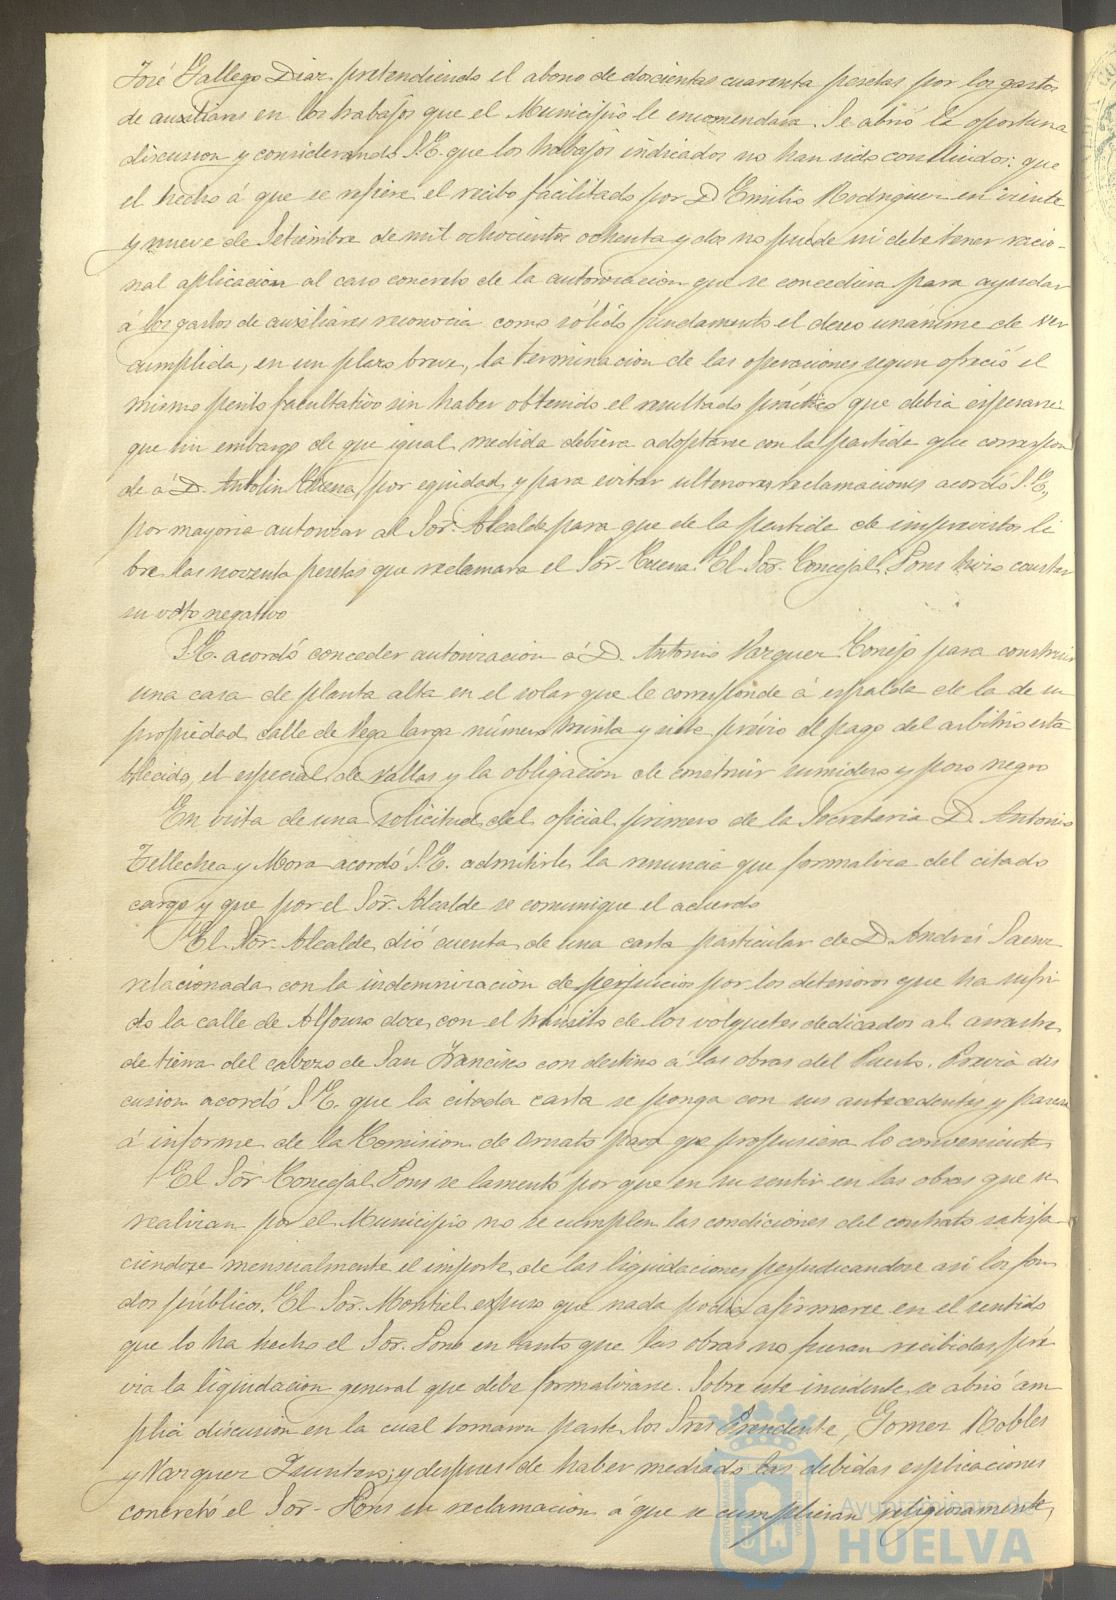 José Gallego Diaz pretendiendo el abono de doscientas cuarenta pesetas por los gastos
de auxiliares en los trabajos que el Municipio le encomendara. Se abrió la oportuna
discusion y considerando S.E. que los trabajos indicados no han sido concluidos: que
el hecho á que se refiere el recibo facilitado por D Emilio Rodriguez en veinte
y nueve de Setiembre de mil ochocientos ochenta y dos no puede ni debe tener racio-
nal aplicacion al caso concreto de la autorizacion que se concediera para ayudar
á los gastos de auxiliares reconocia como sólido fundamento el deseo unanime de ver
cumplida, en un plazo breve, la terminacion de las operaciones segun ofreció el
mismo perito facultativo sin haber obtenido el resultado práctico que debia esperarse:
que sin embargo de que igual medida debiera adoptarse con la partida que correspon
de á D. Antolin Cuena, por equidad y para evitar ulteriores reclamaciones acordó S.E.,
por mayoria autorizar al Sor. Alcalde para que de la partida de imprevistos li
bre las noventa pesetas que reclamara el Sor. Cuena. El Sor. Concejal Pons hizo constar
su voto negativo
S.E. acordó conceder autorizacion á D. Antonio Vazquez Conejo para construir
una casa de planta alta en el solar que le corresponde á espalda de la de su
propiedad calle de Vega larga número treinta y siete prévio el pago del arbitrio esta
blecido, el especial de vallas y la obligacion de construir sumidero y pozo negro
En vista de una solicitud del oficial primero de la Secretaria D. Antonio
Tellechea y Mora acordó S.E. admitirle la renuncia que formaliza del citado
cargo y que por el Sor. Alcalde se comunique el acuerdo
El Sor. Alcalde dió cuenta de una carta particular de D. Andrés Saenz
relacionada con la indemnizacion de perjuicios por los deterioros que ha sufri
do la calle de Alfonso doce con el tránsito de los volquetes dedicados al arrastre
de tierra del cabezo de San Francisco con destino á las obras del Puerto. Previa dis
cusion acordó S.E. que la citada carta se ponga con sus antecedentes y pasara
á informe de la Comision de Ornato para que propusiera lo conveniente
El Sor Concejal Pons se lamentó por que en su sentir en las obras que se
realizan por el Municipio no se cumplen las condiciones del contrato satisfa-
ciendose mensualmente el importe de las liquidaciones perjudicandose asi los fon
dos públicos. El Sor. Montiel expuso que nada podia afirmarse en el sentido
que lo ha hecho el Sor. Pons en tanto que las obras no fueran recibidas pré
via la liquidacion general que debe formalizarse. Sobre este incidente se abrió am
plia discusion en la cual tomaron parte los Sres Presidente, Gomez Robles
y Vazquez; y despues de haber mediado las debidas esplicaciones
concretó el Sor. Pons su reclamacion á que se cumplieran religiosamente,
Ayuntamiento de
HUELVA